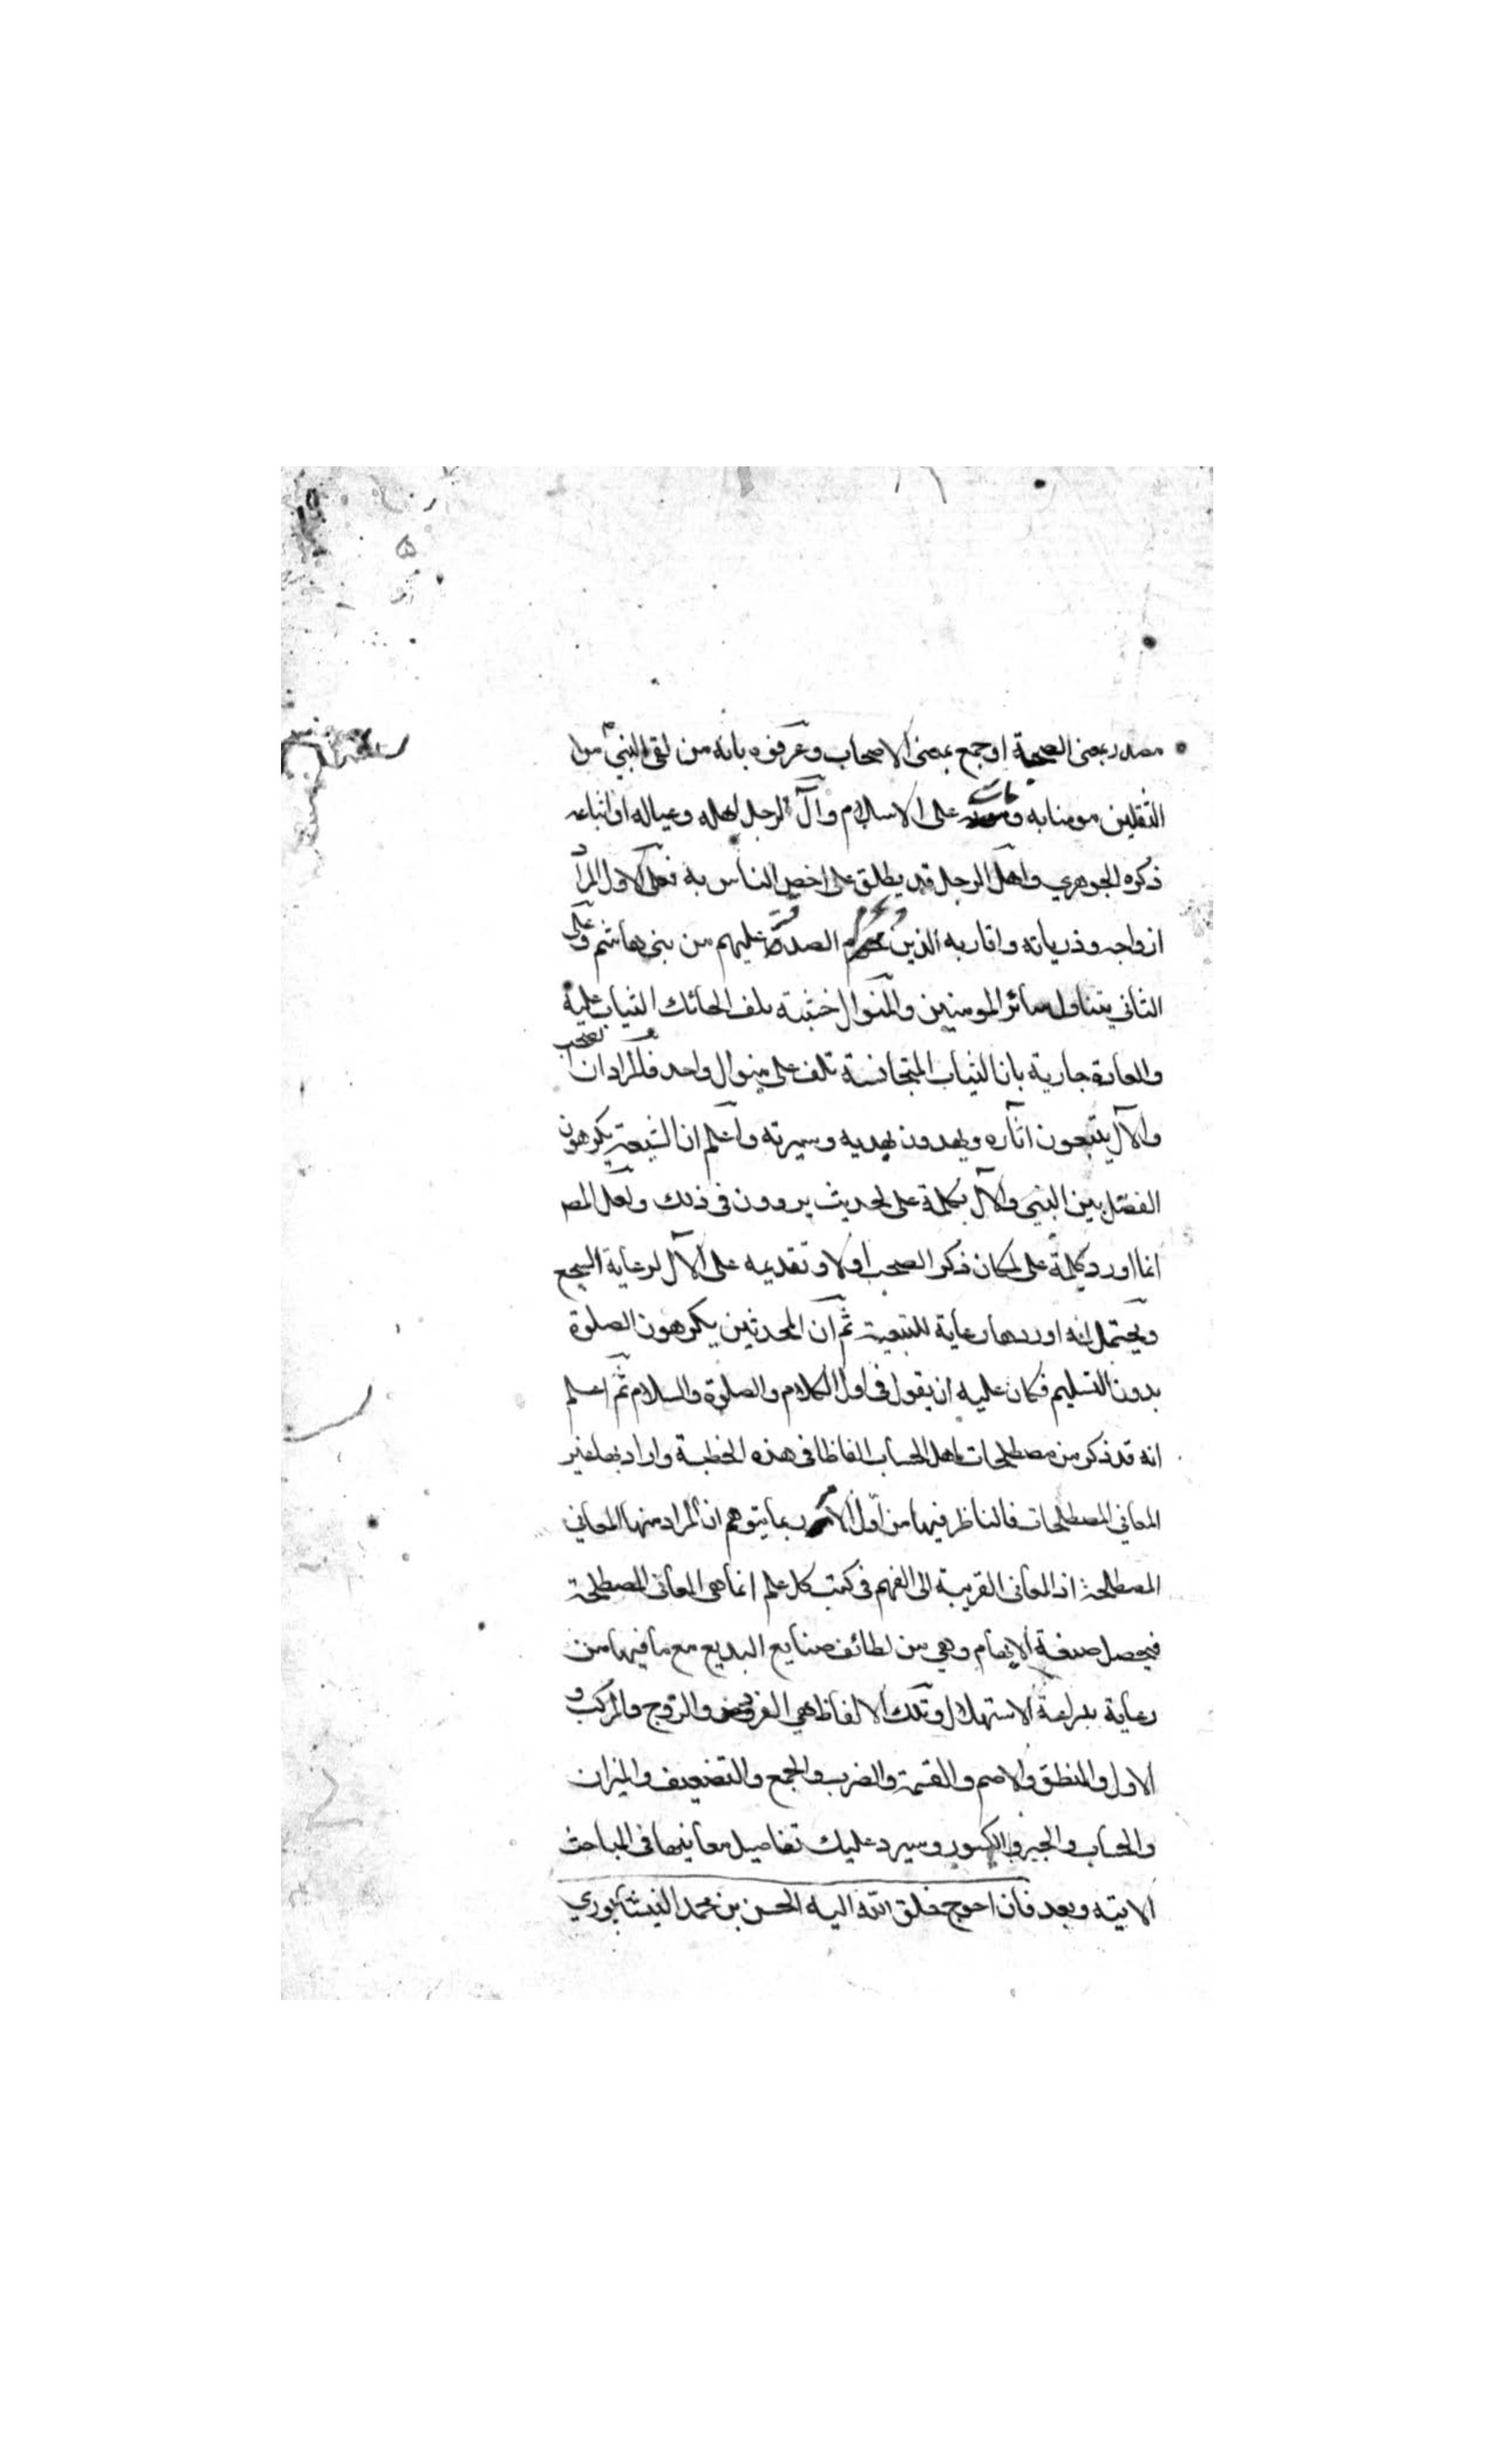 مصدر بمعنى الصحبة او جمع بمعنى الاصحاب وعرفوه بانه من لقى النبي من
الثقلين مومنا به ومات على الاسلام وآل الرجل اهله وعياله او اتباعه
ذكره الجوهري واهل الرجل قد يطلق على اخص الناس به فعلى الاول المراد
ازواجه وذرياته واقاربه الذين الصدقة عليهم من بني هاشم وعلى
الثاني يتناول سائر المومنين والمنوال خشبة يلف الحائك الثياب عليه
والعادة جارية بان الثياب المتجانسة تلف على منوال واحد فالمراد ان الصحب
والآل يتبعون اثاره ويهدون بهديه وسيرته واعلم ان الشيعة يكرهون
الفصل بين النبي والآل بكلمة على لحديث يروون في ذلك ولعل المصـ
انما اورد كلمة على لمكان ذكر الصحب اولا وتقديمه على الآل لرعاية السجع
ويحتمل انه اوردها رعاية للتبعية ثم ان المحدثين يكرهون الصلوة
بدون التسليم فكان عليه ان يقول في اول الكلام والصلوة والسلام ثم اعلم
انه قد ذكر من مصطلحات اهل الحساب الفاظا في هذه الخطبة واراد بها غير
المعاني المصطلحات فالناظر فيها من اول الامر ربما يتوهم ان المراد منها المعاني
المصطلحة اذ المعاني القريبة الى الفهم في كتب كل علم انما هي المعاني المصطلحة
فيحصل صنعة الايهام وهي من لطائف صنايع البديع مع ما فيها من
رعاية براعة الاستهلال وتلك الالفاظ هي الفرد والزوج والمركب و
الاول والمنطق والاصم والقسمة والضرب والجمع والتضعيف والميزان
والحساب والجبر والكسور وسيرد عليك تفاصيل معانيها في المباحث
الاتيه وبعد فان احوج خلق الله اليه الحسن بن محمد النيشابوري